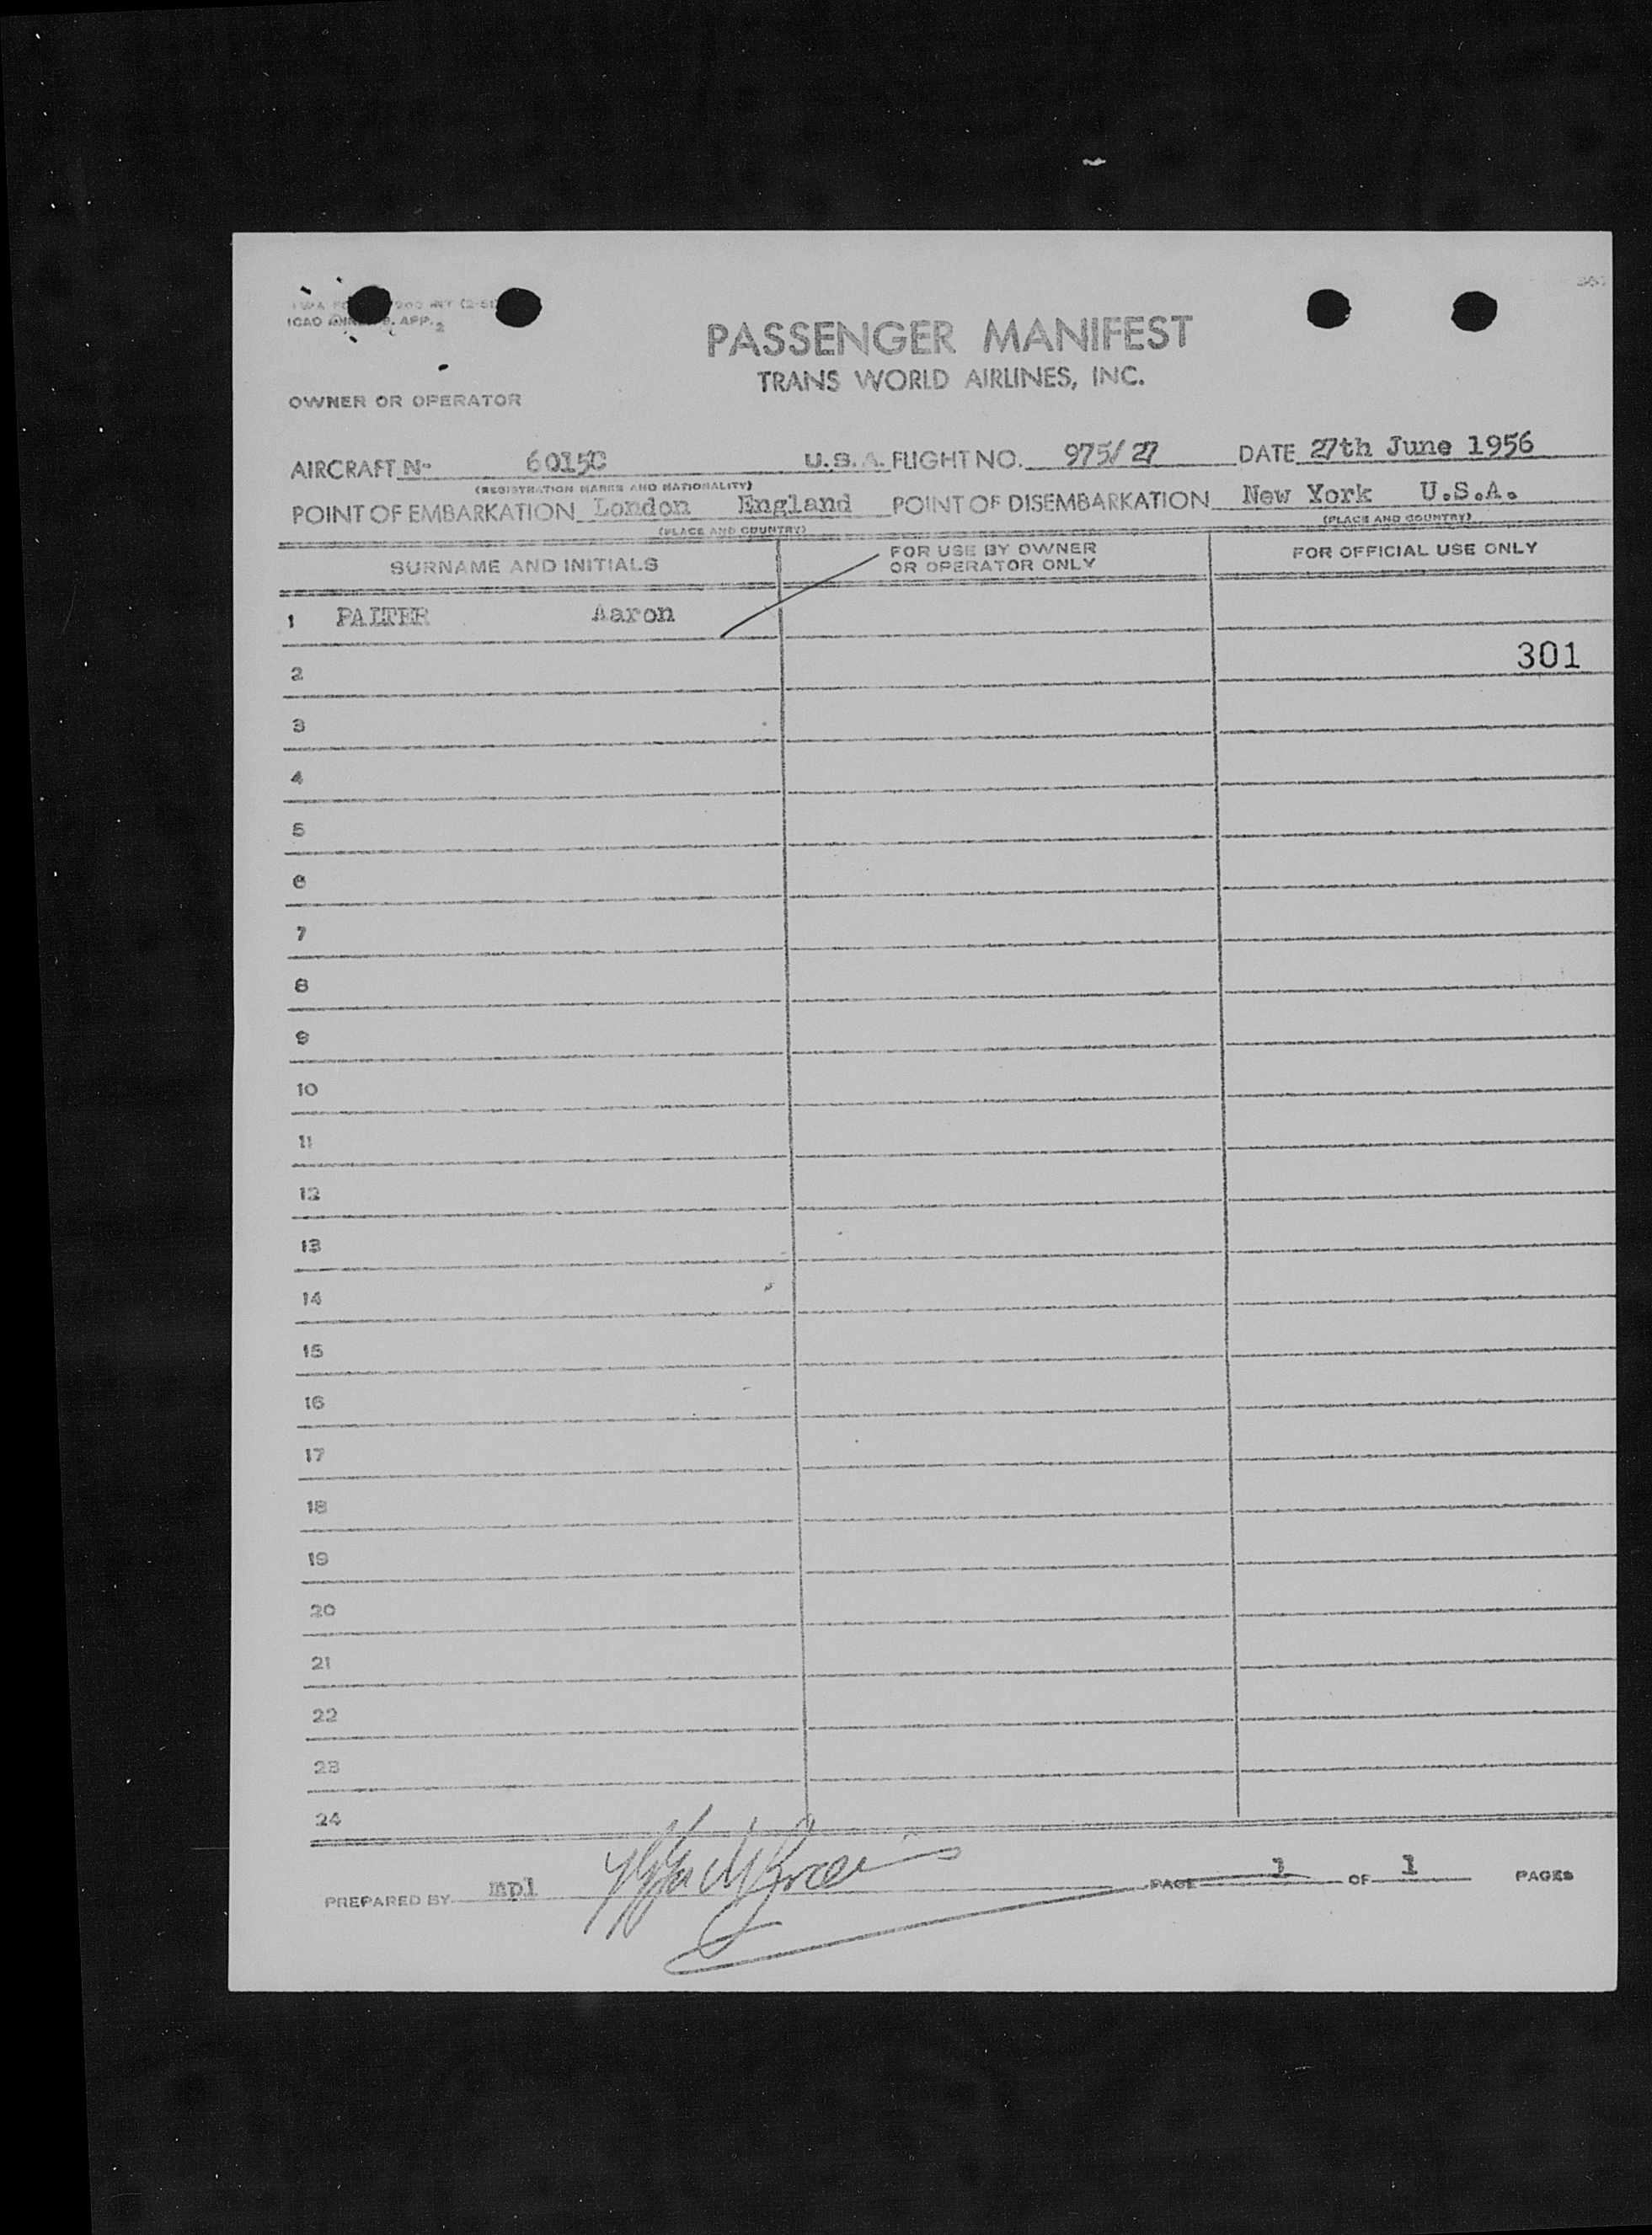 ICAO APP. 2
PASSENGER MANIFEST
TRANS WORLD AIRLINES, INC.
OWNER OR OPERATOR
AIRCRAFT N- 6015C U.S.A. FLIGHT NO. 975/27 DATE 27th June 1956
(REGISTRATION MARKS AND NATIONALITY)
POINT OF EMBARKATION London England POINT OF DISEMBARKATION New York U.S.A.
(PLACE AND COUNTRY) (PLACE AND COUNTRY)
SURNAME AND INITIALS FOR USE BY OWNER OR OPERATOR ONLY FOR OFFICIAL USE ONLY
1 PALTER Aaron
2 301
3
4
5
6
7
8
9
10
11
12
13
14
15
16
17
18
19
20
21
22
23
24
PREPARED BY mpl PAGE 1 OF 1 PAGES